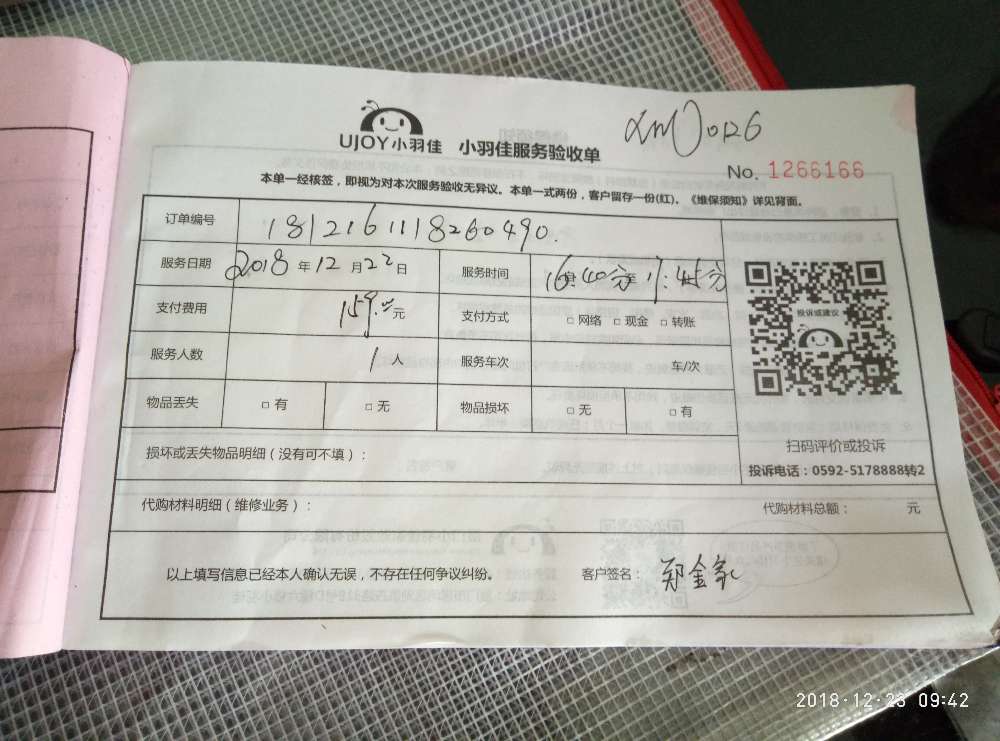 UJOY小羽佳 小羽佳服务验收单
0126
No. 1266166
本单一经核签，即视为对本次服务验收无异议。本单一式两份，客户留存一份(红)。《维保须知》详见背面。
订单编号 1812161118260490.
服务日期 2018年12月22日 服务时间 16时40分至17:45分
支付费用 159.00元 支付方式 □网络 □现金 □转账
投诉或建议
服务人数 1人 服务车次 车/次
物品丢失 □有 □无 物品损坏 □无 □有
扫码评价或投诉
损坏或丢失物品明细（没有可不填）：
投诉电话：0592-5178888转2
代购材料明细（维修业务）： 代购材料总额： 元
以上填写信息已经本人确认无误，不存在任何争议纠纷。 客户签名： 郑金
2018-12-23 09:42